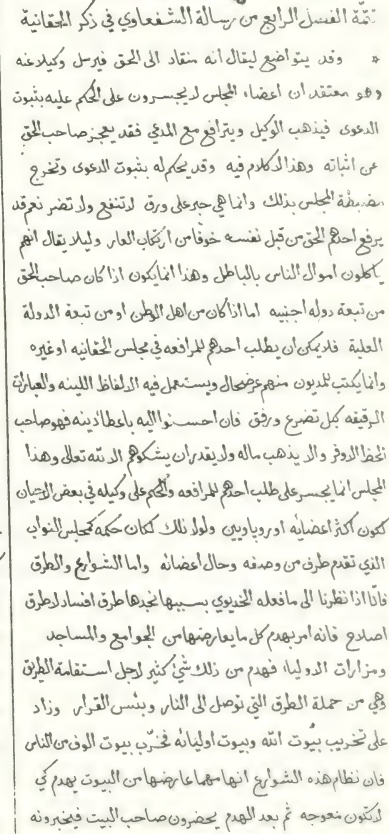 تتمة الفصل الرابع من رسالة الشفعاوي في ذكر الحقانية
* وقد يتواضع ليقال أنه منقاد الى الحق فيرسل وكيلا عنه
وهو معتقد ان اعضاء المجلس لا يجسرون على الحكم عليه بثبوت
الدعوى فيذهب الوكيل ويترافع مع المدعي فقد يعجز صاحب الحق
عن اثباته وهذا لا كلام فيه وقد يحكم له بثبوت الدعوى وتخرج
مضبطة المجلس بذلك وانما هي حبر على ورق لا تنفع ولا تضر نعم قد
يرفع احدهم الحق من قبل نفسه خوفا من ارتكاب العار وليلا يقال انهم
ياكلون اموال الناس بالباطل وهذا انما يكون اذا كان صاحب الحق
من تبعة دوله اجنبيه اما اذا كان من اهل الوطن او من تبعة الدولة
العلية فلا يمكن ان يطلب احدهم للمرافعه في مجلس الحقانيه او غيره
وانما يكتب للمديون منهم عرضحال ويستعمل فيه الالفاظ اللينه والعبارات
الرقيقه بكل تضرع ورفق فان احسنوا اليه باعطاء دينه فهو صاحب
الحظ الاوفر والا يذهب ماله ولا يقدر ان يشكوهم الا لله تعالى وهذا
المجلس انما يجسر على طلب احدهم للمرافعه والحكم على وكيله في بعض الاحيان
لكون اكثر اعضائه اوروباويين ولولا ذلك لكان حكمه كمجلس النواب
الذي تقدم طرف من وصفه وحال اعضائه واما الشوارع والطرق
فانا اذا نظرنا الى ما فعله الخديوي بسببها نجدها طرق افساد لا طرق
اصلاح فانه امر بهدم كل ما يعارضها من الجوامع والمساجد
ومزارات الاولياء فهدم من ذلك شئ كثير لاجل استقامة الطرق
وهي من جملة الطرق التي توصل الى النار وبئس القرار وزاد
على تخريب بيوت الله وبيوت اوليائه فخرب بيوت الوف من الناس
فان نظام هذه الشوارع انها مهما عارضها من البيوت يهدم كي
لا تكون معوجه ثم بعد الهدم يحضرون صاحب البيت فيخبرونه